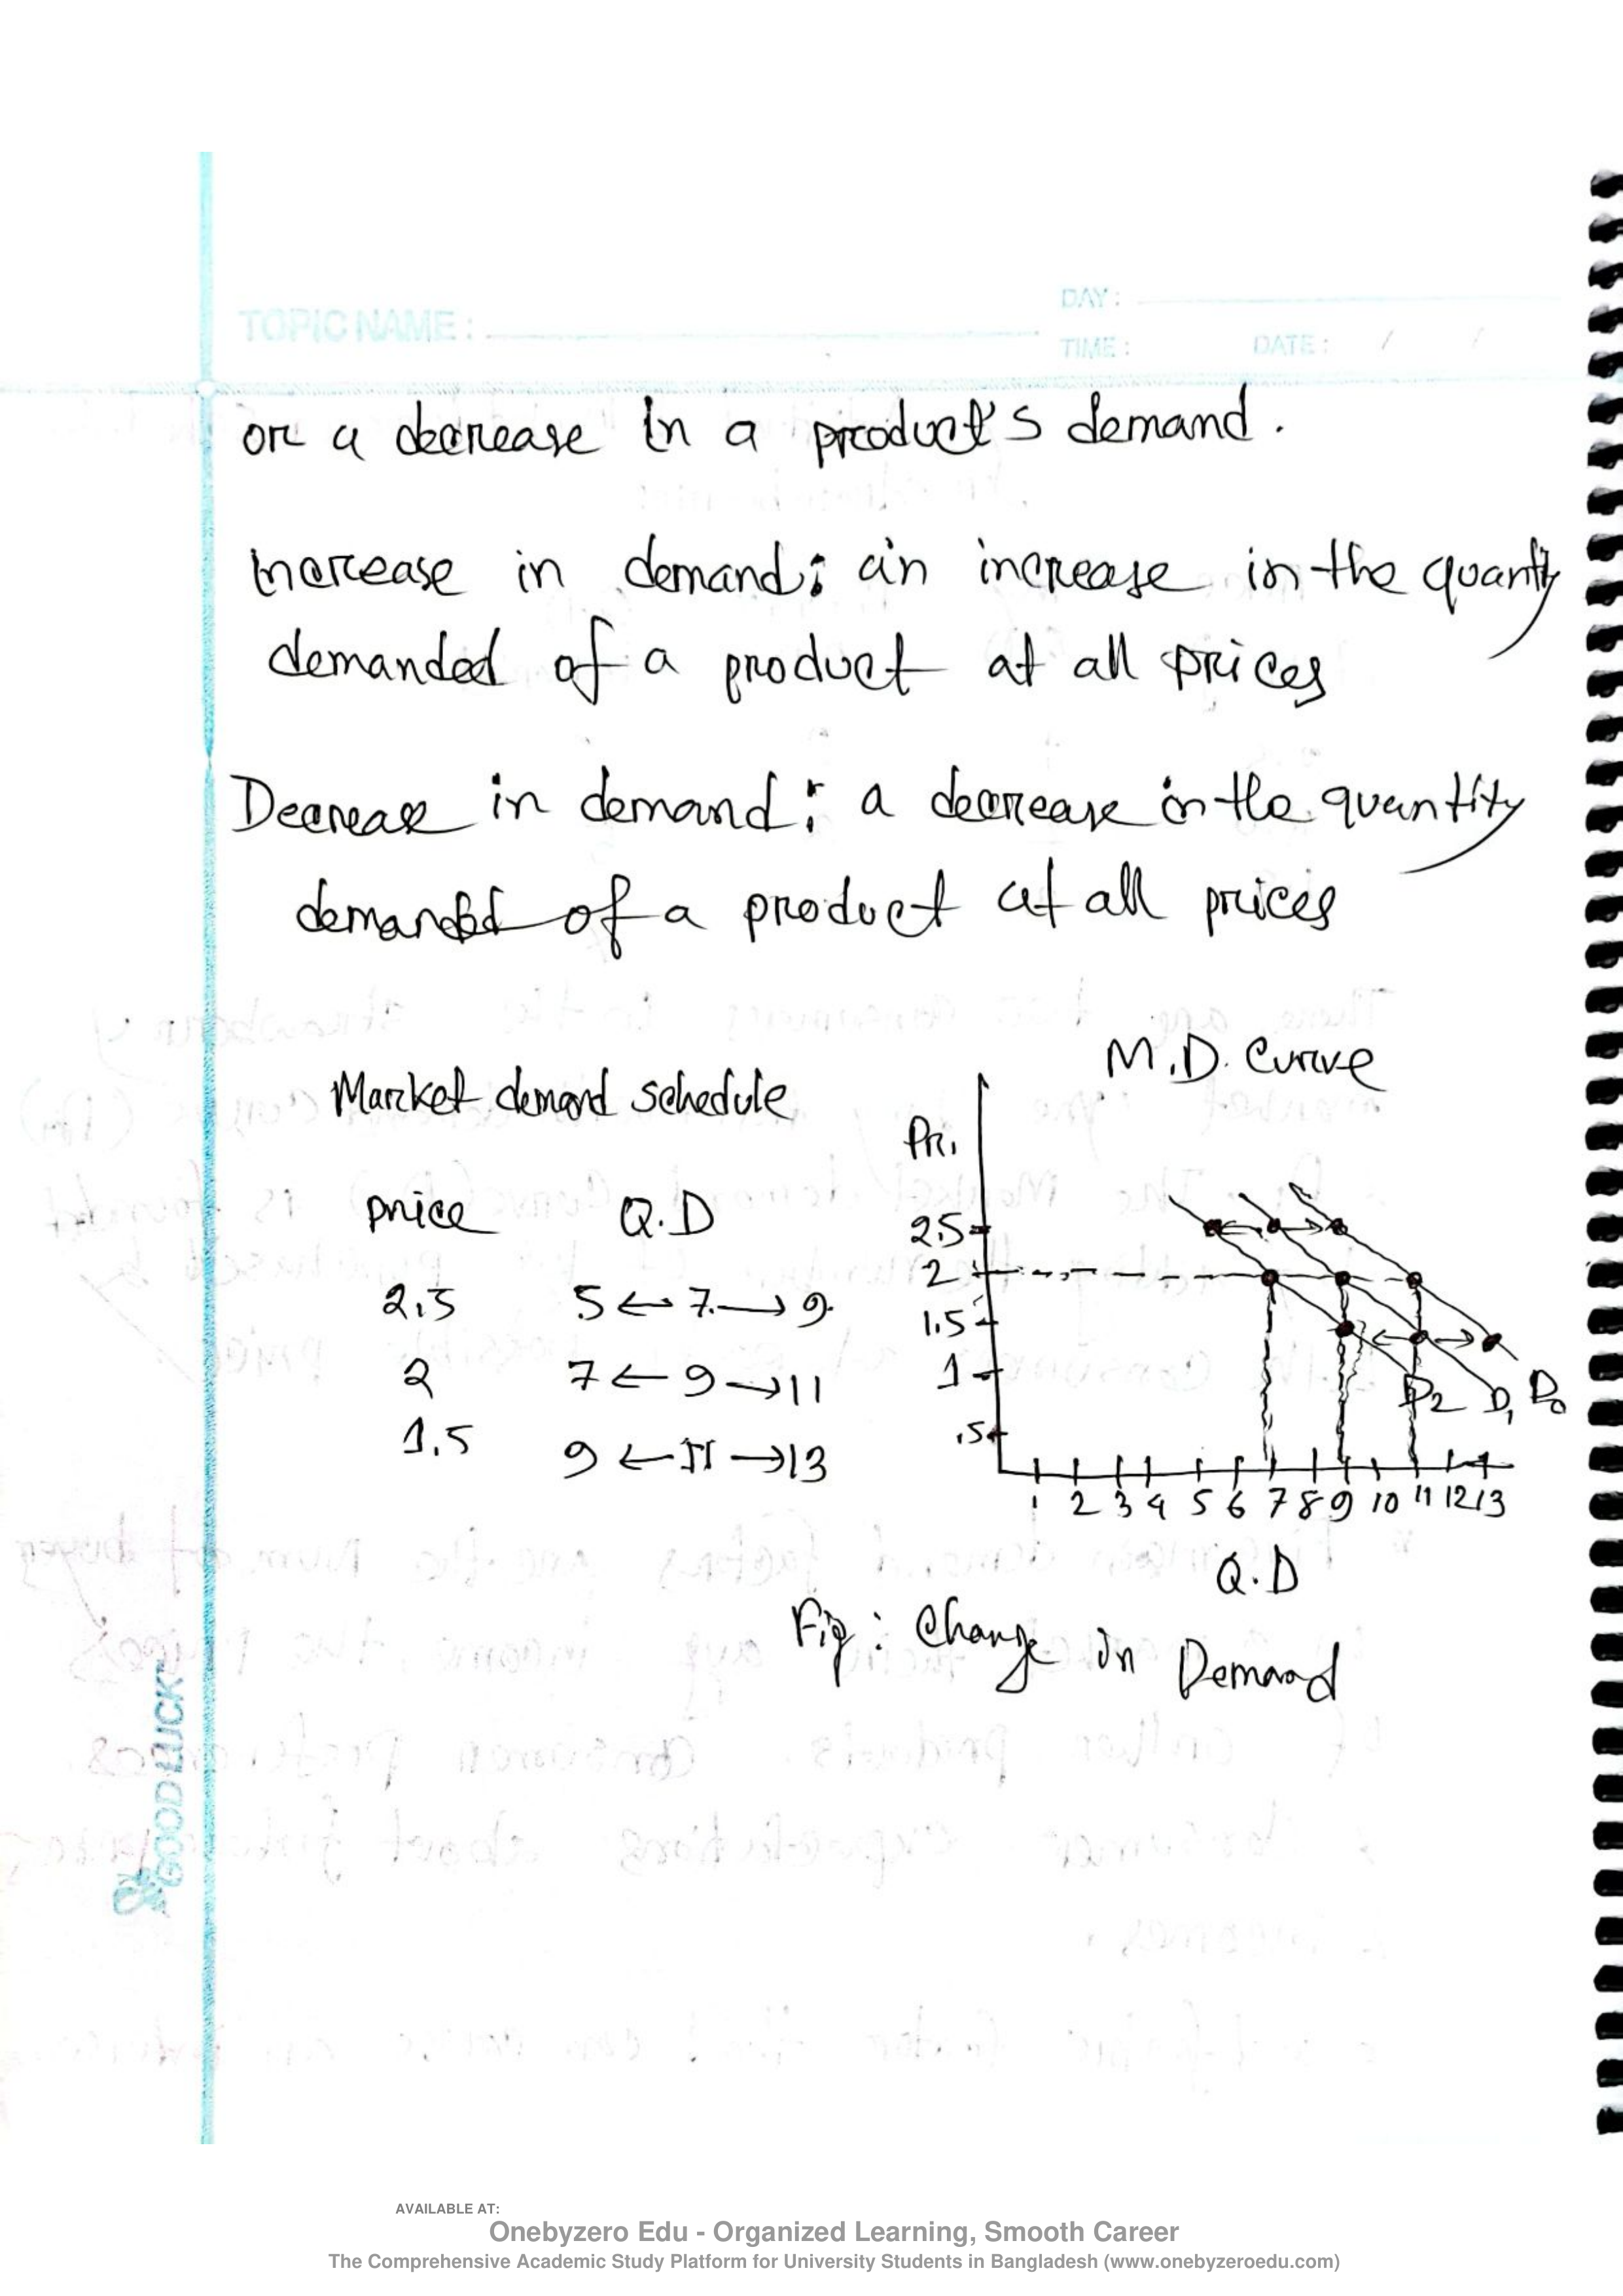 TOPIC NAME :
DAY :
TIME : DATE : / /
or a decrease in a product's demand.
Increase in demand: an increase in the quantity
demanded of a product at all prices
Decrease in demand: a decrease in the quantity
demanded of a product at all prices
Market demand schedule
price Q.D
2.5 5 ← 7 → 9
2 7 ← 9 → 11
1.5 9 ← 11 → 13
M.D. Curve
Pr.
2.5
2
1.5
1
.5
D2 D1 D0
1 2 3 4 5 6 7 8 9 10 11 12 13
Q.D
Fig : Change in Demand
GOOD LUCK
AVAILABLE AT:
Onebyzero Edu - Organized Learning, Smooth Career
The Comprehensive Academic Study Platform for University Students in Bangladesh (www.onebyzeroedu.com)